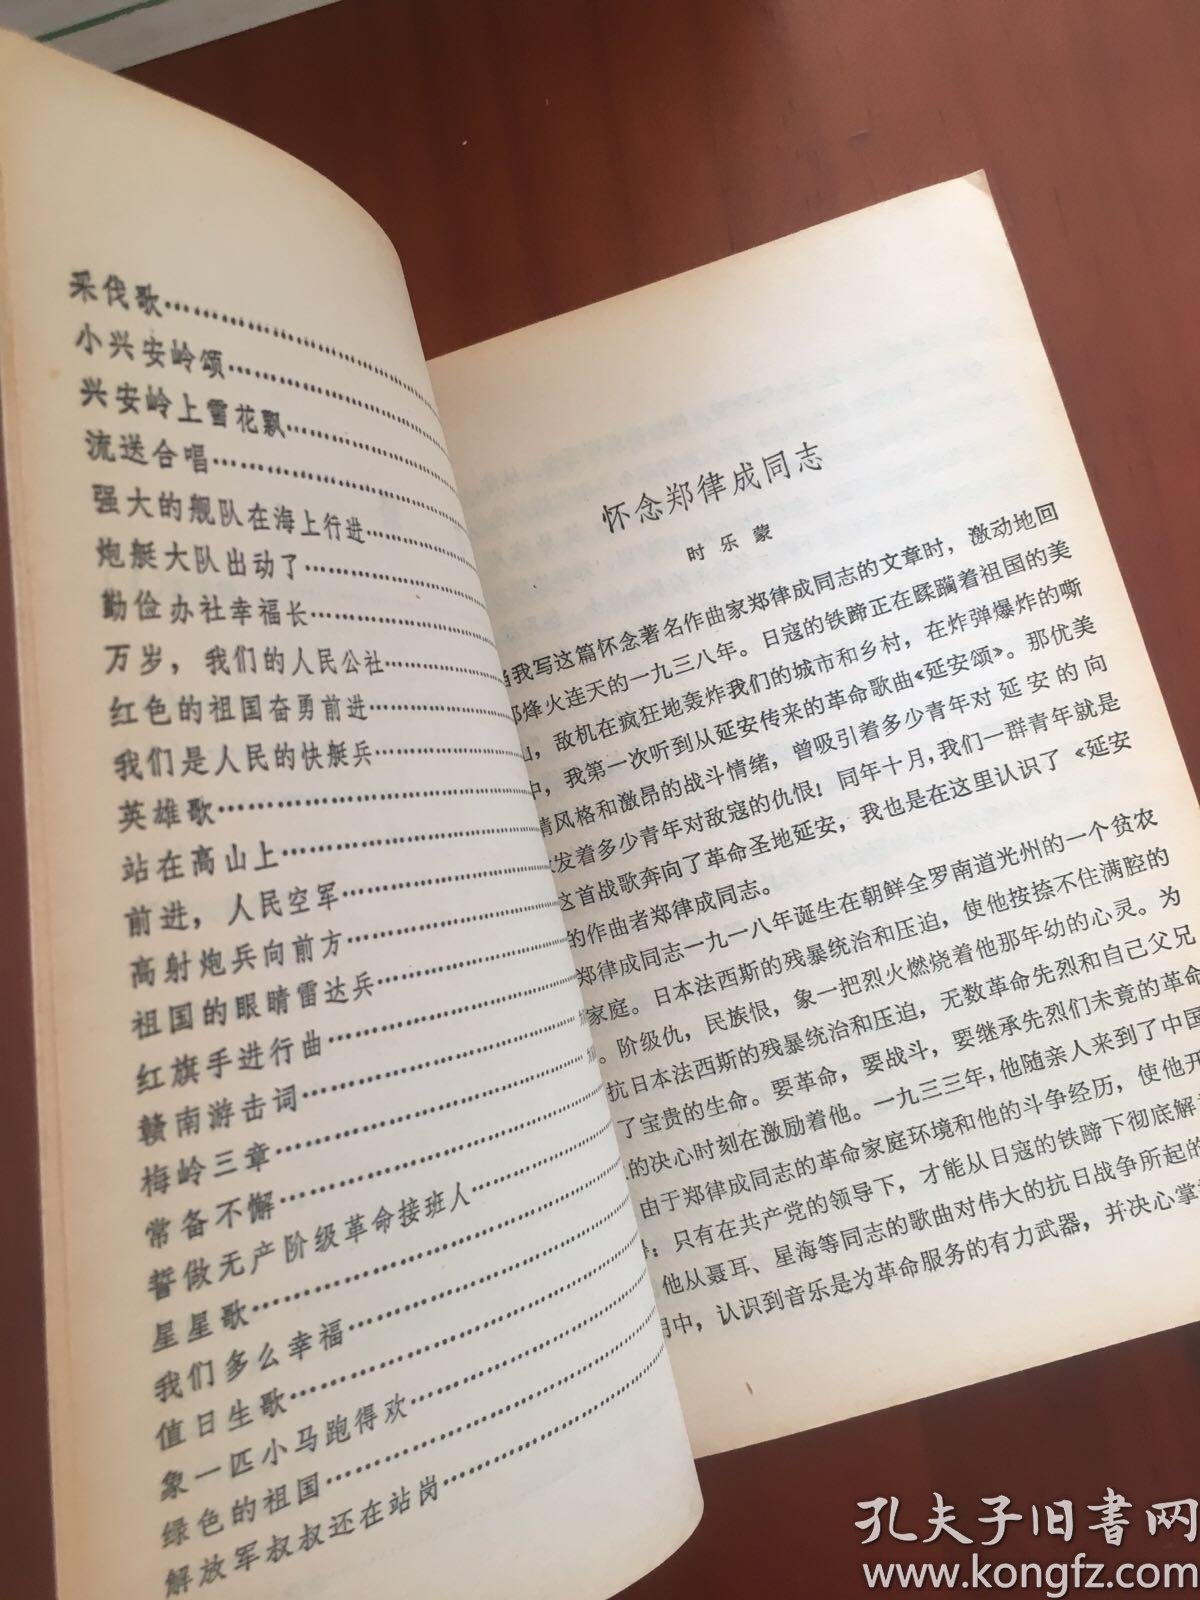 采伐歌…………………………
小兴安岭颂…………………………
兴安岭上雪花飘…………………………
流送合唱…………………………
强大的舰队在海上行进…………………………
炮艇大队出动了…………………………
勤俭办社幸福长…………………………
万岁，我们的人民公社…………………………
红色的祖国奋勇前进…………………………
我们是人民的快艇兵…………………………
英雄歌…………………………
站在高山上…………………………
前进，人民空军…………………………
高射炮兵向前方…………………………
祖国的眼睛雷达兵…………………………
红旗手进行曲…………………………
赣南游击词…………………………
梅岭三章…………………………
常备不懈…………………………
誓做无产阶级革命接班人…………………………
星星歌…………………………
我们多么幸福…………………………
值日生歌…………………………
象一匹小马跑得欢…………………………
绿色的祖国…………………………
解放军叔叔还在站岗…………………………
怀念郑律成同志
时乐蒙
我写这篇怀念著名作曲家郑律成同志的文章时，激动地回
烽火连天的一九三八年。日寇的铁蹄正在蹂躏着祖国的美
，敌机在疯狂地轰炸我们的城市和乡村，在炸弹爆炸的嘶
中，我第一次听到从延安传来的革命歌曲《延安颂》。那优美
情风格和激昂的战斗情绪，曾吸引着多少青年对延安的向
发着多少青年对敌寇的仇恨！同年十月，我们一群青年就是
这首战歌奔向了革命圣地延安，我也是在这里认识了《延安
的作曲者郑律成同志。
郑律成同志一九一八年诞生在朝鲜全罗南道光州的一个贫农
家庭。日本法西斯的残暴统治和压迫，使他按捺不住满腔的
。阶级仇，民族恨，象一把烈火燃烧着他那年幼的心灵。为
抗日本法西斯的残暴统治和压迫，无数革命先烈和自己父兄
了宝贵的生命。要革命，要战斗，要继承先烈们未竟的革命
的决心时刻在激励着他。一九三三年，他随亲人来到了中国
由于郑律成同志的革命家庭环境和他的斗争经历，使他开
：只有在共产党的领导下，才能从日寇的铁蹄下彻底解
他从聂耳、星海等同志的歌曲对伟大的抗日战争所起的
用中，认识到音乐是为革命服务的有力武器，并决心掌
孔夫子旧书网
www.kongfz.com